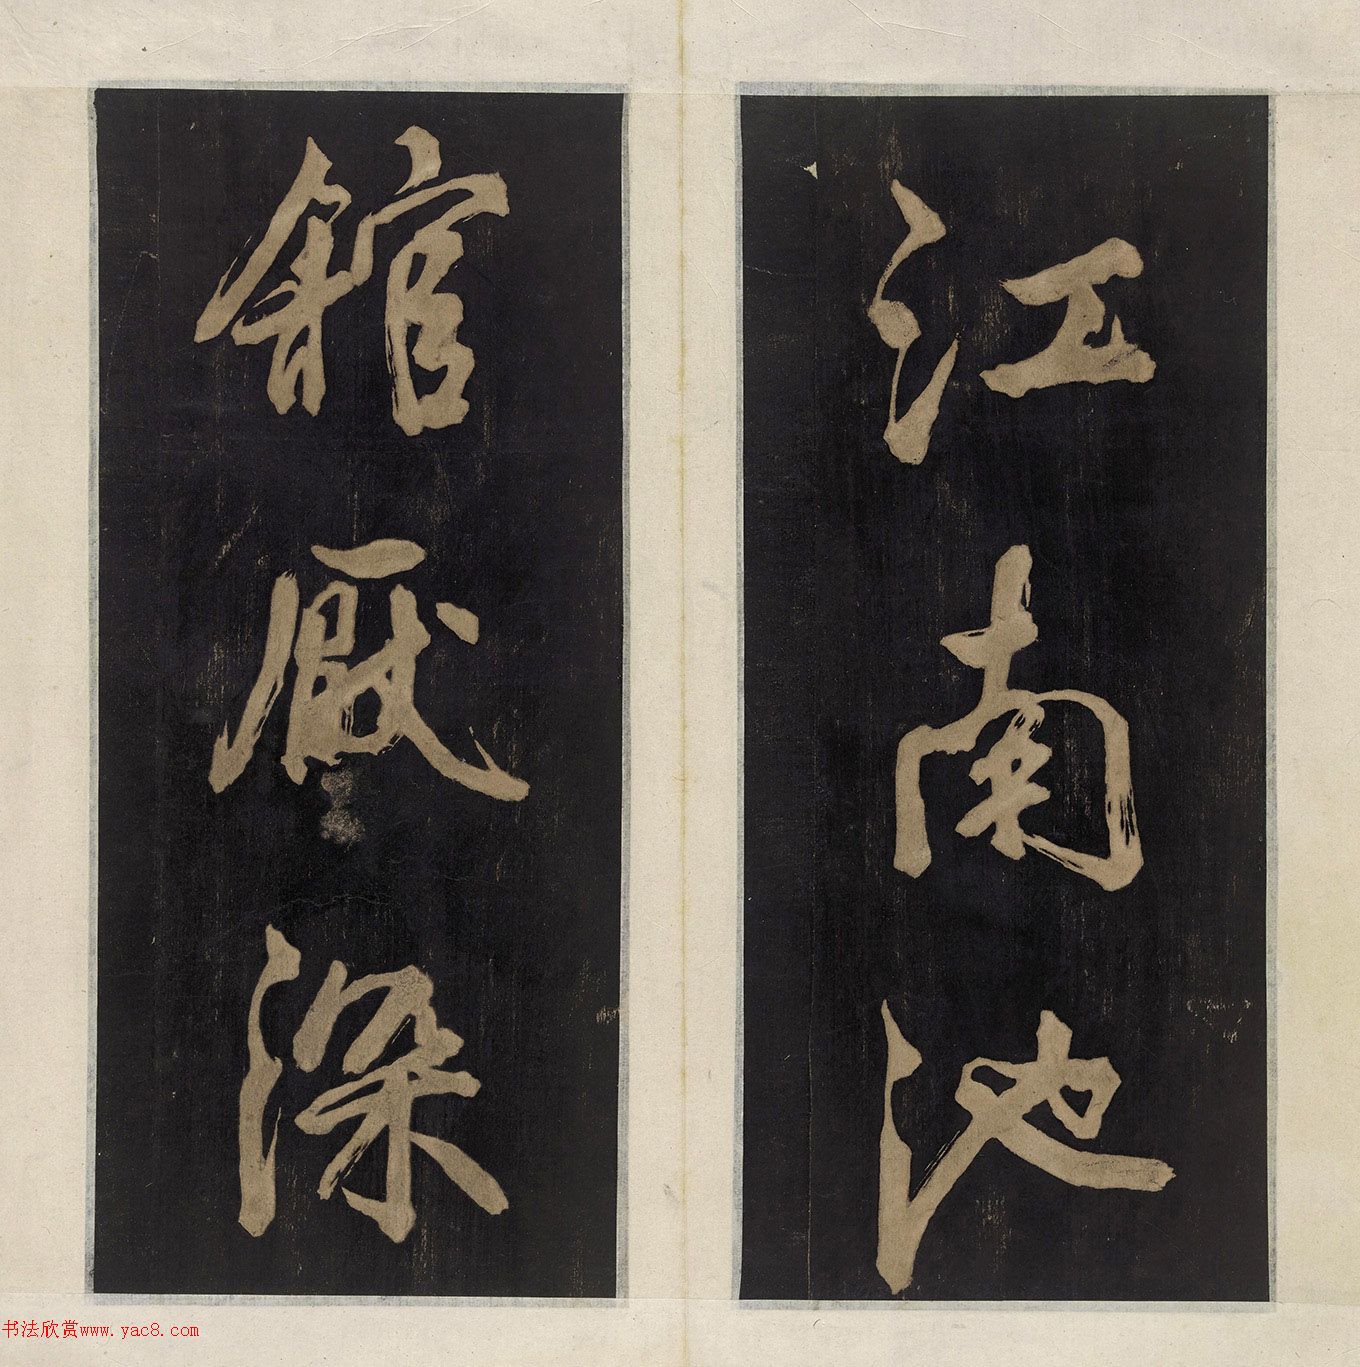 江南池
館厭深
书法欣赏www.yac8.com